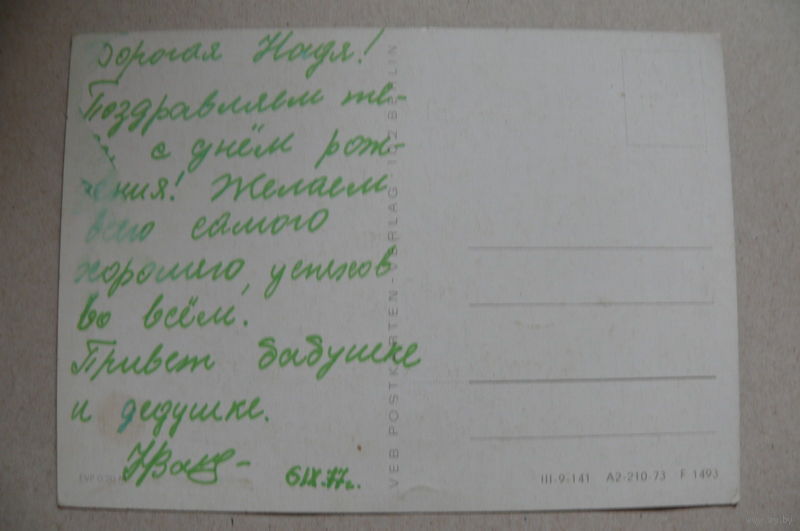 Дорогая Надя!
Поздравляем те-
с днём рож-
дения! Желаем
всего самого
хорошего, успехов
во всём.
Привет бабушке
и дедушке.
6 IX.77г.
VEB POSTKARTEN-VERLAG 102 BERLIN
EVP 0,20
III-9-141 A2-210-73 F 1493